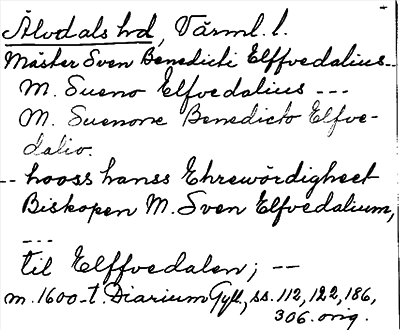 Älvdals hd, Värml. l.
Mäster Sven Benedicti Elffvedalius--
M. Sueno Elfvedalius ---
M. Suenone Benedicto Elfve-
dalio.
-- hooss hanss Ehrewördigheet
Biskopen M. Sven Elfvedalium,
---
til Elffvedalen; --
m. 1600-t. Diarium Gyll., ss. 112, 122, 186,
306. orig.